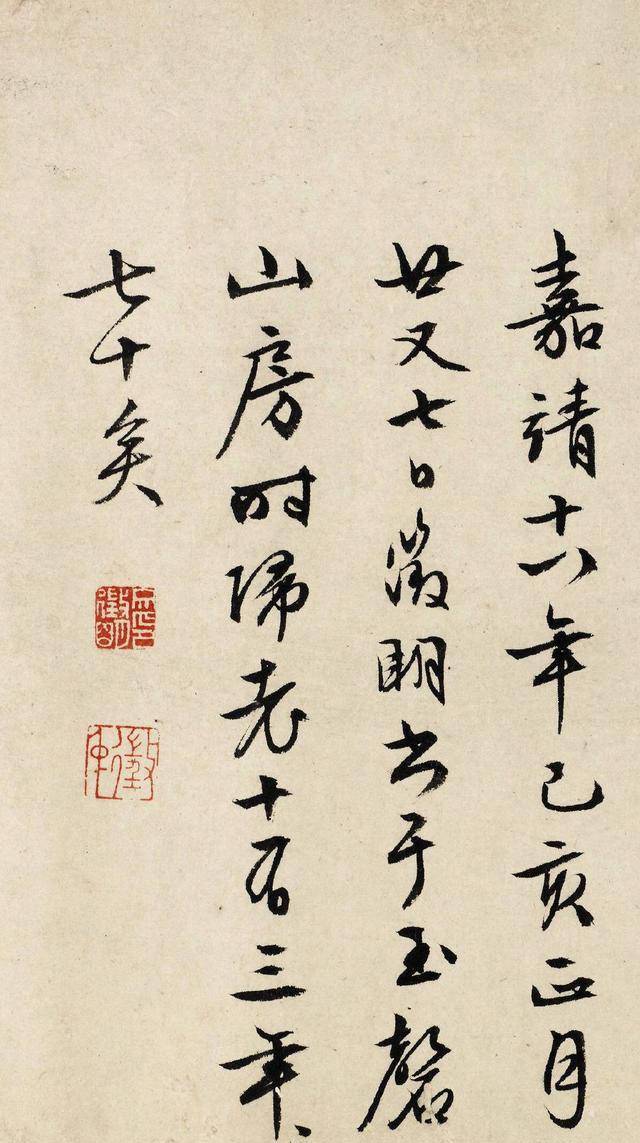 嘉靖十八年己亥正月
廿又七日徵明書于玉磬
山房時歸老十有三年々
七十矣